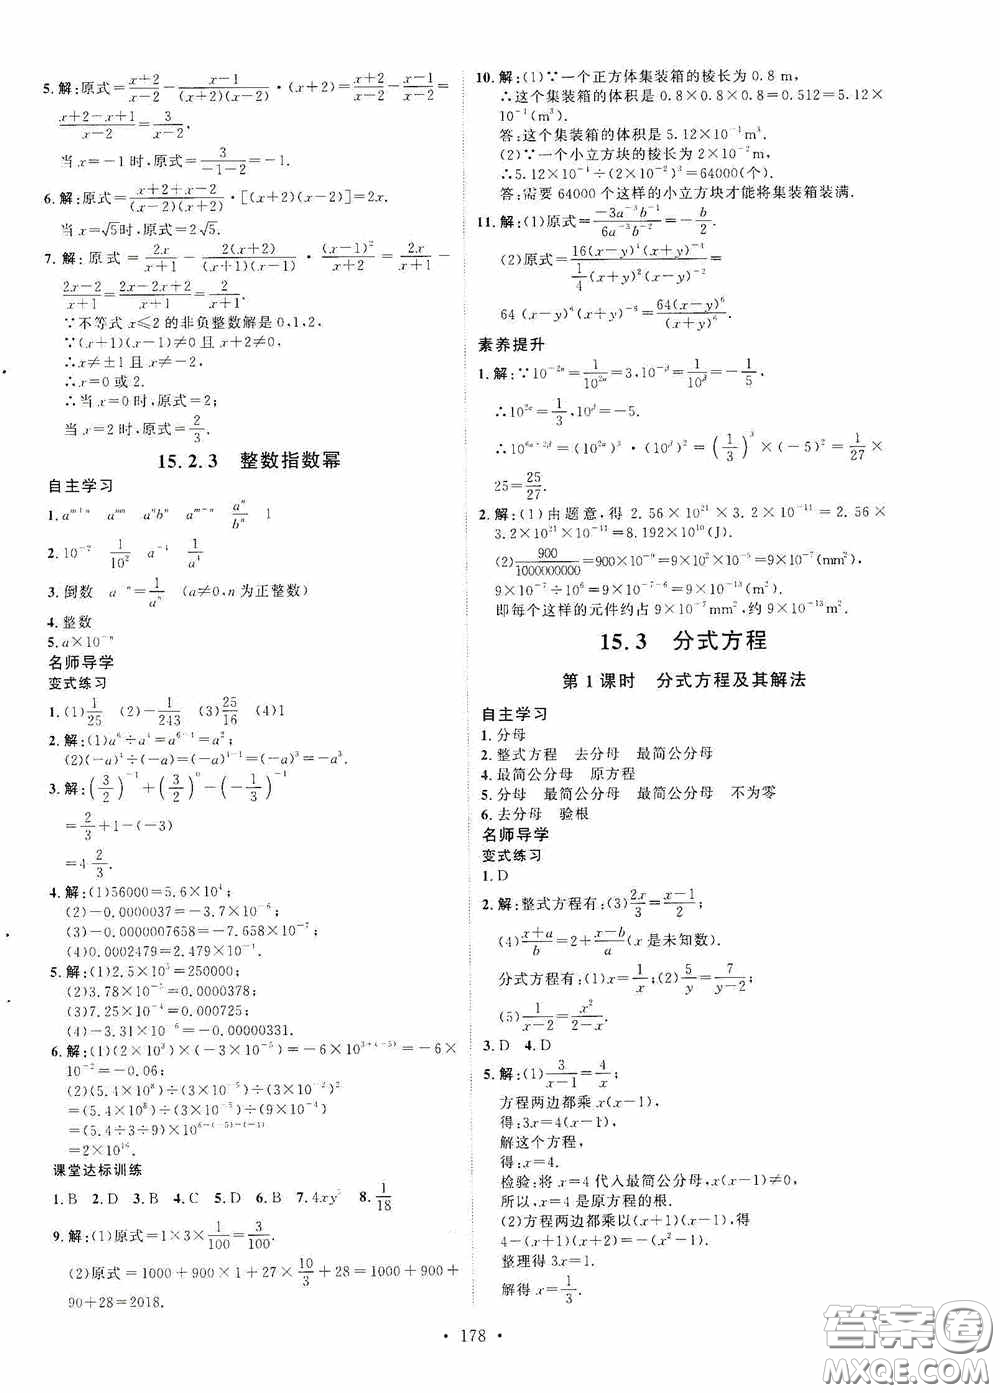 5.解:原式=\frac{x+2}{x-2}-\frac{x-1}{(x+2)(x-2)}·(x+2)=\frac{x+2}{x-2}-\frac{x-1}{x-2}=
\frac{x+2-x+1}{x-2}=\frac{3}{x-2}.
当x=-1时,原式=\frac{3}{-1-2}=-1.
6.解:原式=\frac{x+2+x-2}{(x-2)(x+2)}·[(x+2)(x-2)]=2x.
当x=√5时,原式=2√5.
7.解:原式=\frac{2x}{x+1}-\frac{2(x+2)}{(x+1)(x-1)}·\frac{(x-1)^2}{x+2}=\frac{2x}{x+1}-
\frac{2x-2}{x+1}=\frac{2x-2x+2}{x+1}=\frac{2}{x+1}.
∵不等式x≤2的非负整数解是0,1,2,
∵(x+1)(x-1)≠0且x+2≠0,
∴x≠±1且x≠-2,
∴x=0或2.
∴当x=0时,原式=2;
当x=2时,原式=\frac{2}{3}.
15.2.3 整数指数幂
自主学习
1.a^{m+n} a^{mn} a^n b^n a^{m-n} \frac{a^n}{b^n} 1
2.10^{-7} \frac{1}{10^2} a^{-4} \frac{1}{a^4}
3.倒数 a^{-n}=\frac{1}{a^n} (a≠0,n为正整数)
4.整数
5.a×10^{-n}
名师导学
变式练习
1.(1)\frac{1}{25} (2)-\frac{1}{243} (3)\frac{25}{16} (4)1
2.解:(1)a^6÷a^4=a^{6-4}=a^2;
(2)(-a)^4÷(-a)=(-a)^{4-1}=(-a)^3=-a^3.
3.解:(\frac{3}{2})^{-1}+(\frac{3}{2})^0-(-\frac{1}{3})^{-1}
=\frac{2}{3}+1-(-3)
=4\frac{2}{3}.
4.解:(1)56000=5.6×10^4;
(2)-0.0000037=-3.7×10^{-6};
(3)-0.0000007658=-7.658×10^{-7};
(4)0.0002479=2.479×10^{-4}.
5.解:(1)2.5×10^5=250000;
(2)3.78×10^{-5}=0.0000378;
(3)7.25×10^{-4}=0.000725;
(4)-3.31×10^{-6}=-0.00000331.
6.解:(1)(2×10^3)×(-3×10^{-5})=-6×10^{3+(-5)}=-6×
10^{-2}=-0.06;
(2)(5.4×10^8)÷(3×10^{-5})÷(3×10^{-2})^2
=(5.4×10^8)÷(3×10^{-5})÷(9×10^{-4})
=(5.4÷3÷9)×10^{8-(-5)-(-4)}
=2×10^{16}.
课堂达标训练
1.B 2.D 3.B 4.C 5.D 6.B 7.4xy^2 8.\frac{1}{18}
9.解:(1)原式=1×3×\frac{1}{100}=\frac{3}{100}.
(2)原式=1000+900×1+27×\frac{10}{3}+28=1000+900+
90+28=2018.
10.解:(1)∵一个正方体集装箱的棱长为0.8 m,
∴这个集装箱的体积是0.8×0.8×0.8=0.512=5.12×
10^{-1}(m^3).
答:这个集装箱的体积是5.12×10^{-1}m^3.
(2)∵一个小立方块的棱长为2×10^{-2}m,
∴5.12×10^{-1}÷(2×10^{-2})^3=64000(个).
答:需要64000个这样的小立方块才能将集装箱装满.
11.解:(1)原式=\frac{-3a^{-3}b^{-1}}{6a^{-3}b^{-2}}=-\frac{b}{2}.
(2)原式=\frac{16(x-y)^4(x+y)^{-4}}{\frac{1}{4}(x+y)^2(x-y)^{-2}}=
64(x-y)^6(x+y)^{-6}=\frac{64(x-y)^6}{(x+y)^6}.
素养提升
1.解:∵10^{-2α}=\frac{1}{10^{2α}}=3,10^{-β}=\frac{1}{10^β}=-\frac{1}{5},
∴10^{2α}=\frac{1}{3},10^β=-5.
∴10^{6α+2β}=(10^{2α})^3·(10^β)^2=(\frac{1}{3})^3×(-5)^2=\frac{1}{27}×
25=\frac{25}{27}.
2.解:(1)由题意,得2.56×10^{21}×3.2×10^{-11}=2.56×
3.2×10^{21}×10^{-11}=8.192×10^{10}(J).
(2)\frac{900}{1000000000}=900×10^{-9}=9×10^2×10^{-9}=9×10^{-7}(mm^2)
9×10^{-7}÷10^6=9×10^{-7-6}=9×10^{-13}(m^2).
即每个这样的元件约占9×10^{-7}mm^2,约9×10^{-13}m^2.
15.3 分式方程
第1课时 分式方程及其解法
自主学习
1.分母
2.整式方程 去分母 最简公分母
4.最简公分母 原方程
5.分母 最简公分母 最简公分母 不为零
6.去分母 验根
名师导学
变式练习
1.D
2.解:整式方程有:(3)\frac{2x}{3}=\frac{x-1}{2};
(4)\frac{x+a}{b}=2+\frac{x-b}{a}(x是未知数).
分式方程有:(1)x=\frac{1}{x};(2)\frac{5}{y}=\frac{7}{y-2};
(5)\frac{1}{x-2}=\frac{x^2}{2-x}.
3.D 4.D
5.解:(1)\frac{3}{x-1}=\frac{4}{x};
方程两边都乘x(x-1),
得:3x=4(x-1),
解这个方程,
得:x=4.
检验:将x=4代入最简公分母,x(x-1)≠0,
所以,x=4是原方程的根.
(2)方程两边都乘以(x+1)(x-1),得
4-(x+1)(x+2)=-(x^2-1).
整理得3x=1.
解得x=\frac{1}{3}.
· 178 ·
答案圈
MXQE.COM